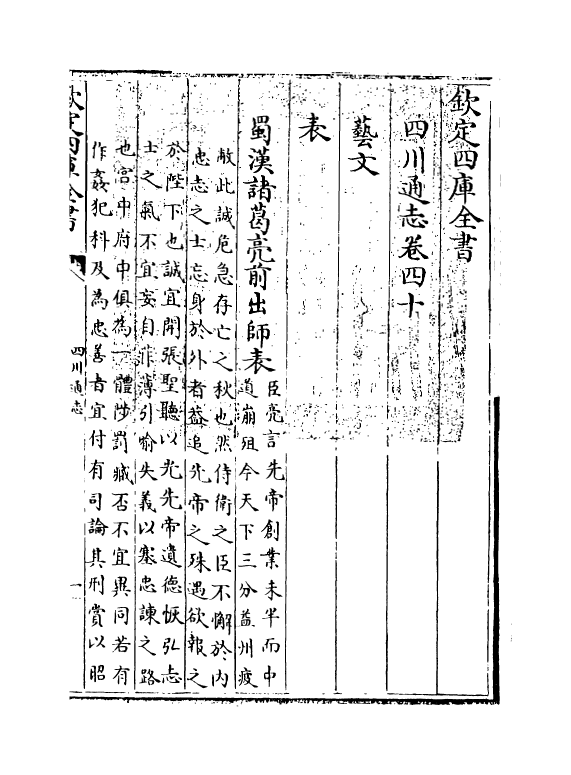 欽定四庫全書
四川通志卷四十
藝文
表
蜀漢諸葛亮前出師表
臣亮言先帝創業未半而中
道崩殂今天下三分益州疲
敝此誠危急存亡之秋也然侍衛之臣不懈於內
忠志之士忘身於外者益追先帝之殊遇欲報之
於陛下也誠宜開張聖聽以光先帝遺德恢弘志
士之氣不宜妄自菲薄引喻失義以塞忠諫之路
也宮中府中俱為一體陟罰臧否不宜異同若有
作姦犯科及為忠善者宜付有司論其刑賞以昭
欽定四庫全書
四川通志
一